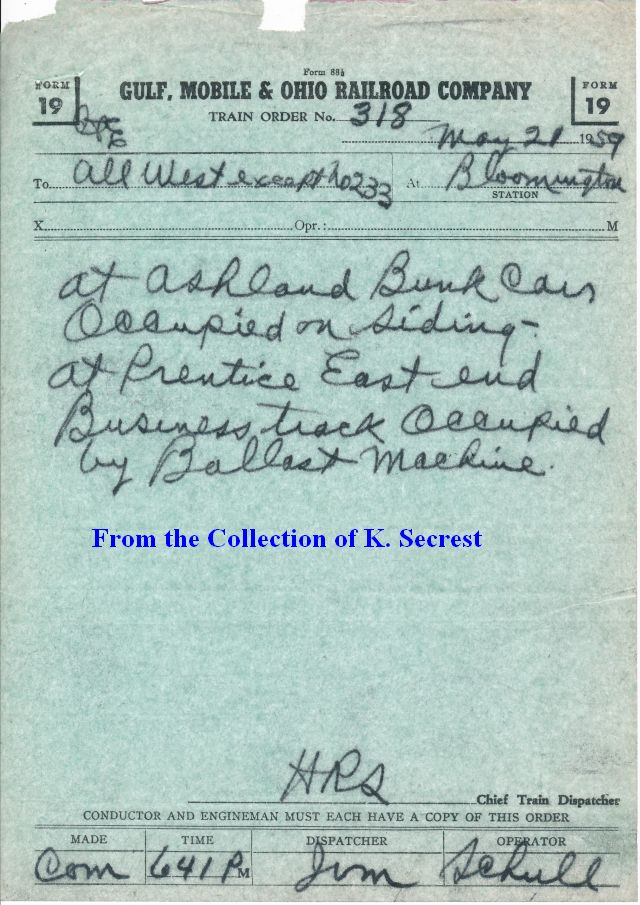 Form 88½
FORM 19
GULF, MOBILE & OHIO RAILROAD COMPANY
FORM 19
TRAIN ORDER No. 318
C&E
May 21 1959
To All West except No 233 At Bloomington
STATION
X Opr.: M
at Ashland Bunk Cars
Occupied on siding-
at Prentice East end
Business track Occupied
by Ballast Machine.
From the Collection of K. Secrest
HRS
Chief Train Dispatcher
CONDUCTOR AND ENGINEMAN MUST EACH HAVE A COPY OF THIS ORDER
MADE TIME DISPATCHER OPERATOR
Com 641 PM Schull